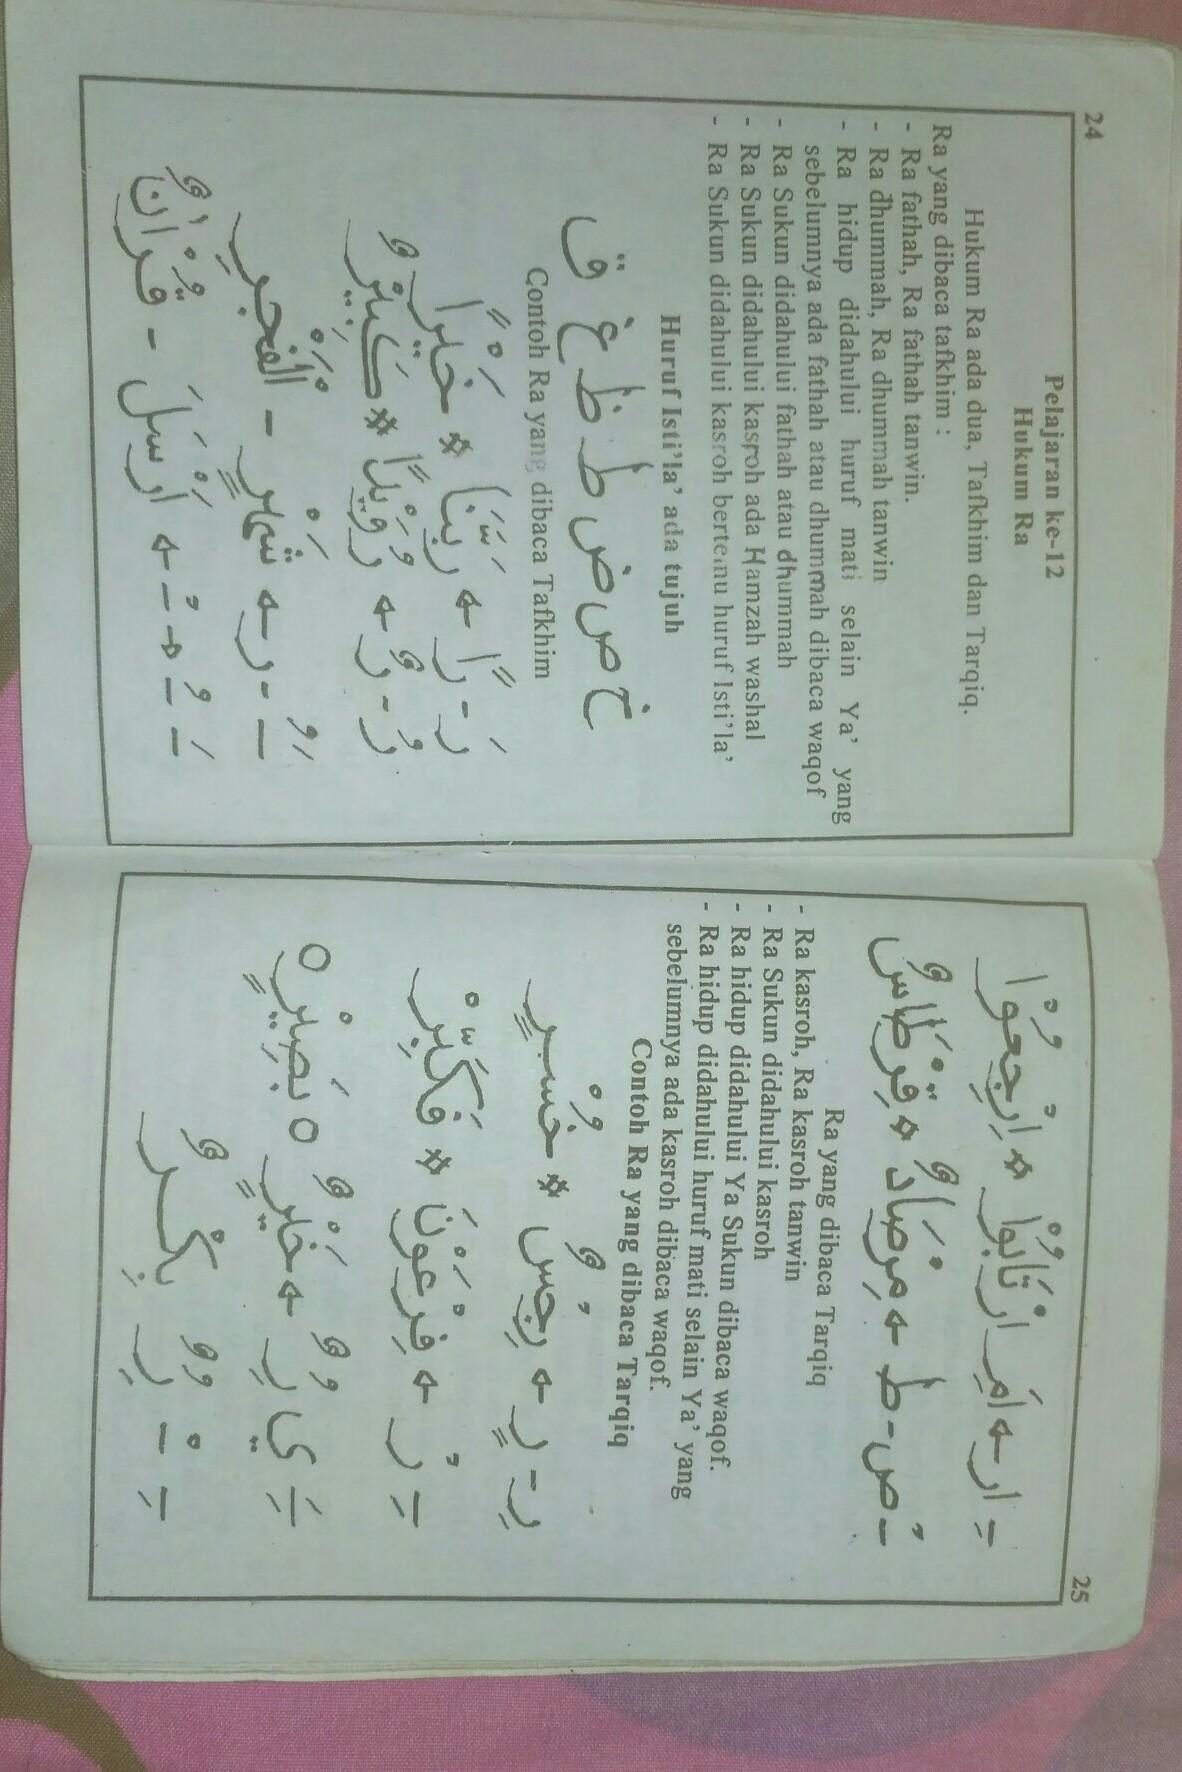 24
Pelajaran ke-12
Hukum Ra
Hukum Ra ada dua, Tafkhim dan Tarqiq.
Ra yang dibaca tafkhim :
- Ra fathah, Ra fathah tanwin.
- Ra dhummah, Ra dhummah tanwin
- Ra hidup didahului huruf mati selain Ya' yang
sebelumnya ada fathah atau dhummah dibaca waqof
- Ra Sukun didahului fathah atau dhummah
- Ra Sukun didahului kasroh ada Hamzah washal
- Ra Sukun didahului kasroh bertemu huruf Isti'la'
Huruf Isti'la' ada tujuh
خ ص ض ط ظ غ ق
Contoh Ra yang dibaca Tafkhim
رَ - رًا ← رَبَّنَا * خَيْرًا
رُ - رٌ ← رُوَيْدًا * كَبِيْرٌ
ر ← شَهْرٍ - الْفَجْرِ
اَرْسَلَ - قُرْاٰنٌ
25
اِرْ ← اَمِ ارْتَابُوْا * اِرْجِعُوْا
ص - ط ← مِرْصَادٌ * قِرْطَاسٌ
Ra yang dibaca Tarqiq
- Ra kasroh, Ra kasroh tanwin
- Ra Sukun didahului kasroh
- Ra hidup didahului Ya Sukun dibaca waqof.
- Ra hidup didahului huruf mati selain Ya' yang
sebelumnya ada kasroh dibaca waqof.
Contoh Ra yang dibaca Tarqiq
رِ - رٍ ← رِجْسٌ * خُسْرٍ
رْ ← فِرْعَوْنَ * فَكَبِّرْ
ي رِ ← خَيْرٌ ○ بَصِيْرٌ ○
رِ بِكْرٌ